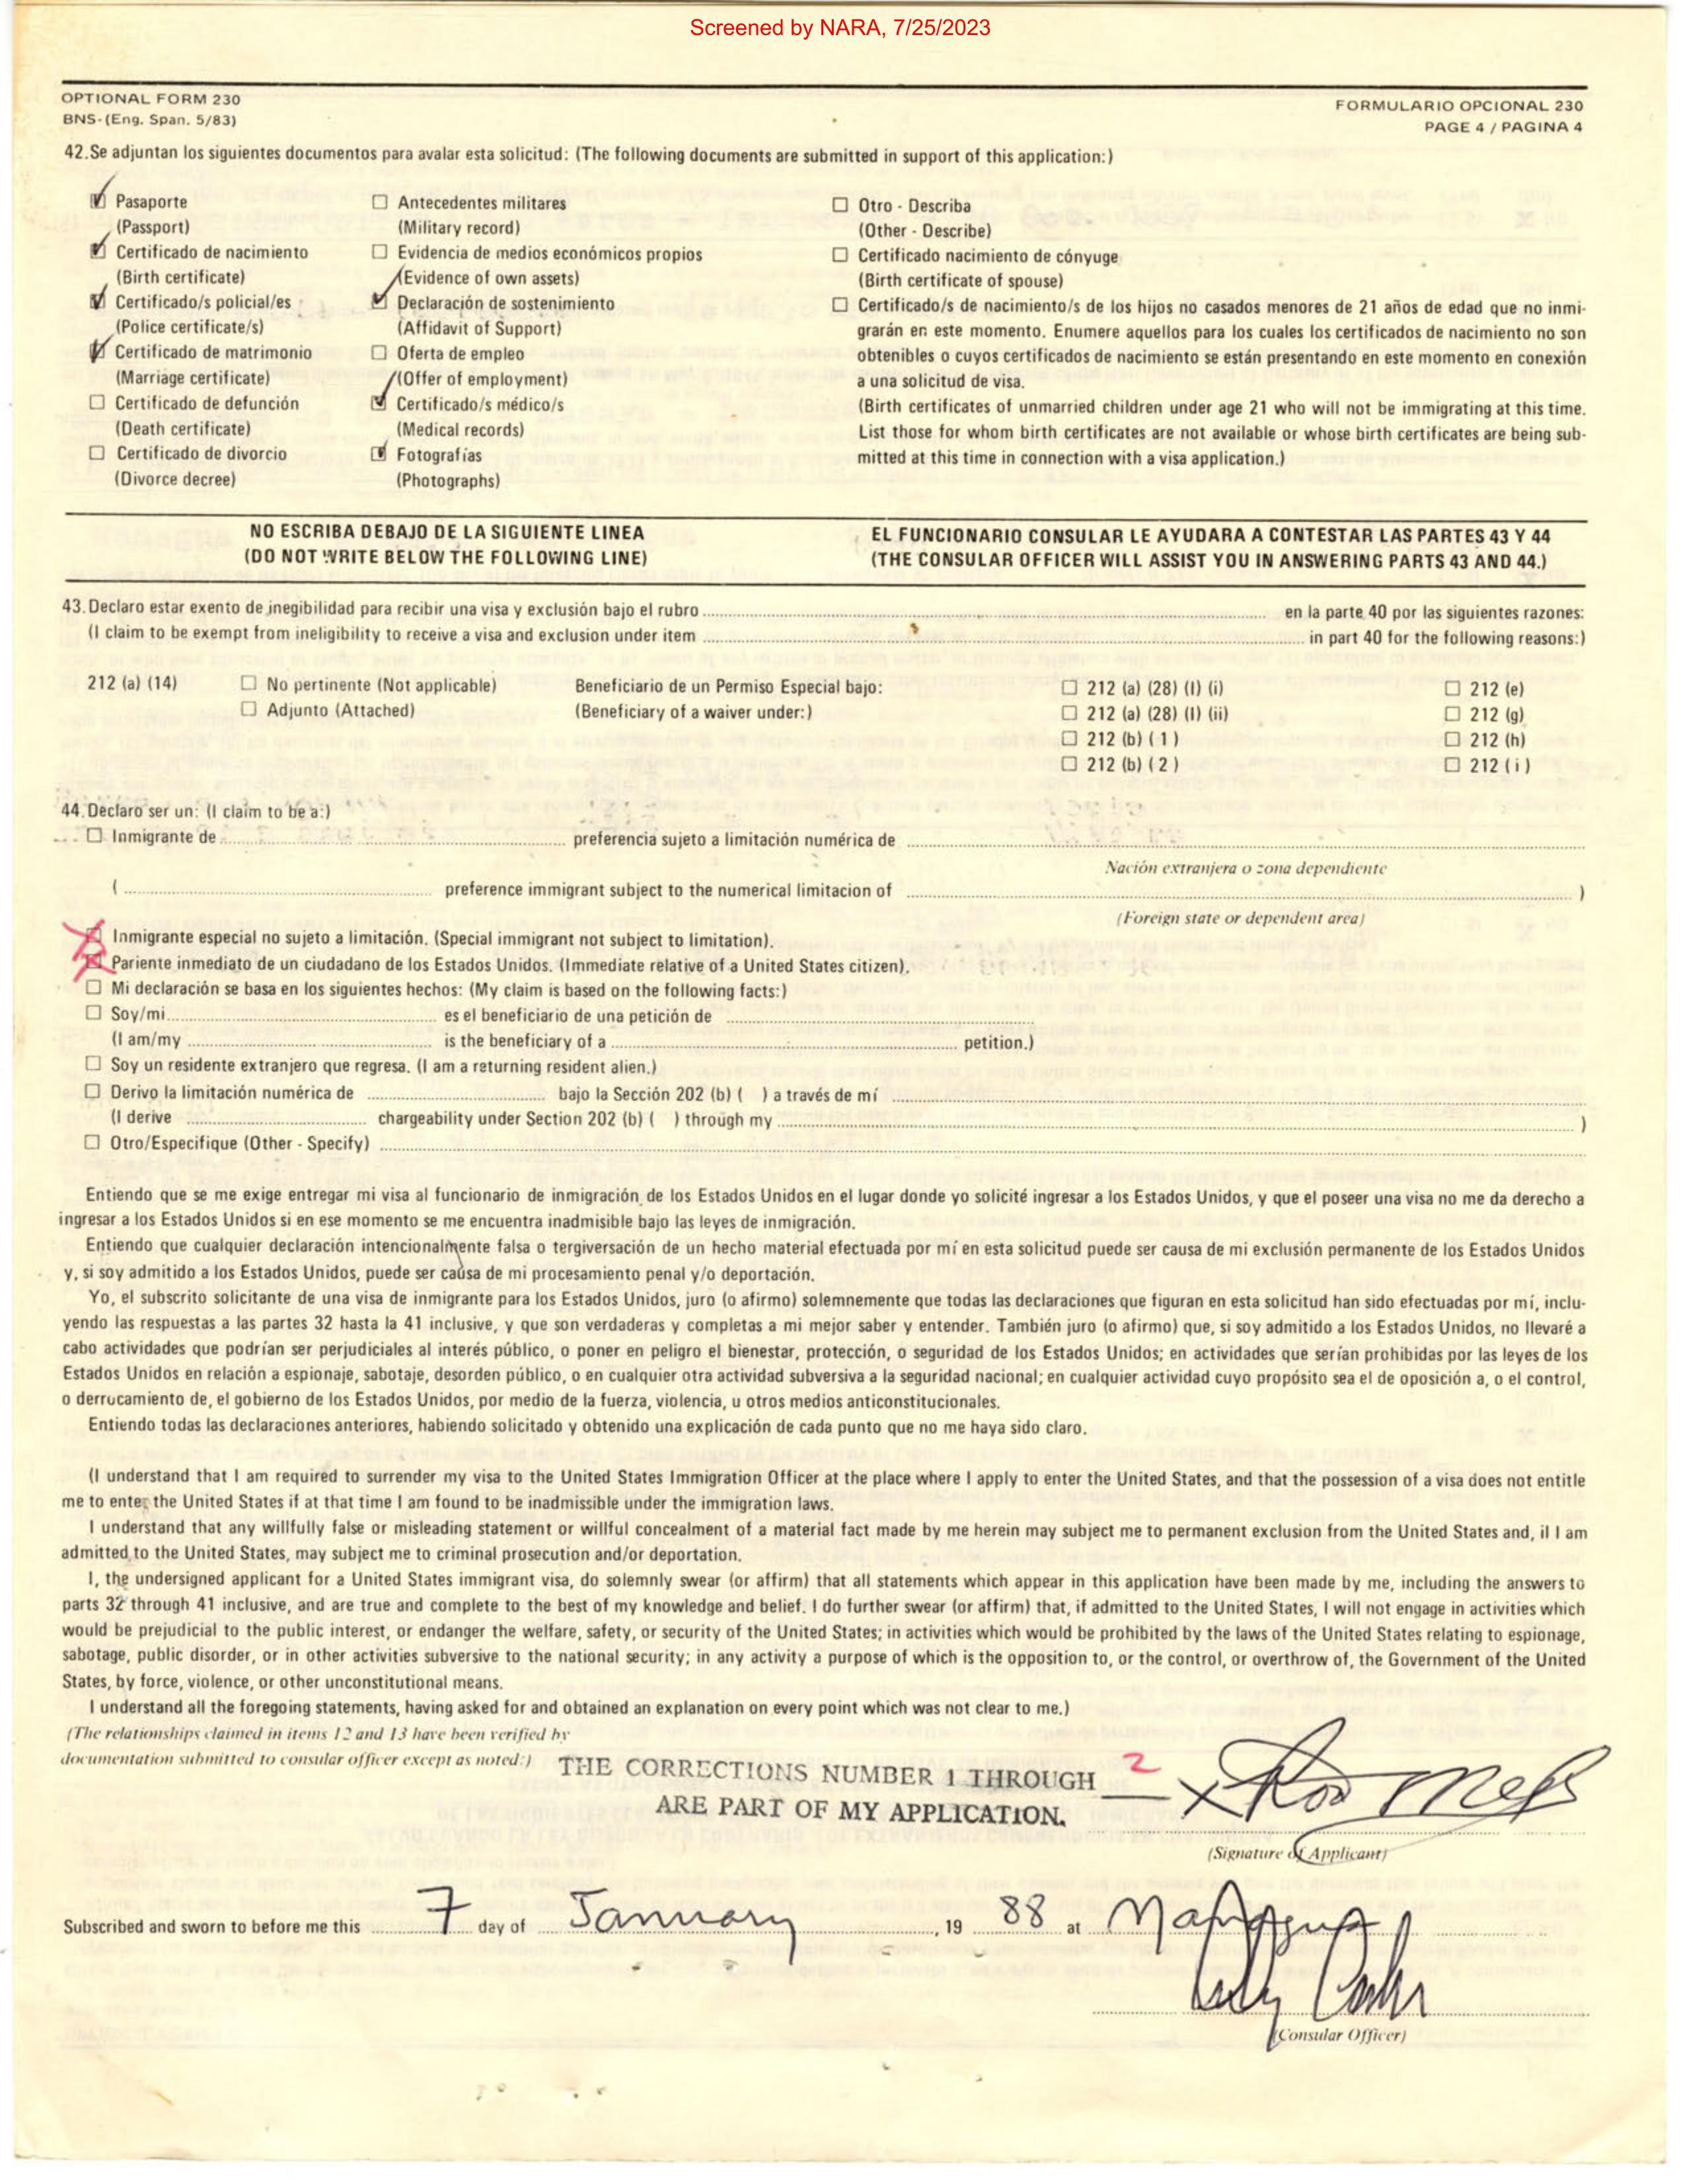 Screened by NARA, 7/25/2023
OPTIONAL FORM 230
BNS-(Eng. Span. 5/83)
FORMULARIO OPCIONAL 230
PAGE 4 / PAGINA 4
42. Se adjuntan los siguientes documentos para avalar esta solicitud: (The following documents are submitted in support of this application:)
Pasaporte
(Passport)
Certificado de nacimiento
(Birth certificate)
Certificado/s policial/es
(Police certificate/s)
Certificado de matrimonio
(Marriage certificate)
Certificado de defunción
(Death certificate)
Certificado de divorcio
(Divorce decree)
Antecedentes militares
(Military record)
Evidencia de medios económicos propios
(Evidence of own assets)
Declaración de sostenimiento
(Affidavit of Support)
Oferta de empleo
(Offer of employment)
Certificado/s médico/s
(Medical records)
Fotografías
(Photographs)
Otro - Describa
(Other - Describe)
Certificado nacimiento de cónyuge
(Birth certificate of spouse)
Certificado/s de nacimiento/s de los hijos no casados menores de 21 años de edad que no inmi-
grarán en este momento. Enumere aquellos para los cuales los certificados de nacimiento no son
obtenibles o cuyos certificados de nacimiento se están presentando en este momento en conexión
a una solicitud de visa.
(Birth certificates of unmarried children under age 21 who will not be immigrating at this time.
List those for whom birth certificates are not available or whose birth certificates are being sub-
mitted at this time in connection with a visa application.)
NO ESCRIBA DEBAJO DE LA SIGUIENTE LINEA
(DO NOT WRITE BELOW THE FOLLOWING LINE)
EL FUNCIONARIO CONSULAR LE AYUDARA A CONTESTAR LAS PARTES 43 Y 44
(THE CONSULAR OFFICER WILL ASSIST YOU IN ANSWERING PARTS 43 AND 44.)
43. Declaro estar exento de inegibilidad para recibir una visa y exclusión bajo el rubro en la parte 40 por las siguientes razones:
(I claim to be exempt from ineligibility to receive a visa and exclusion under item in part 40 for the following reasons:)
212 (a) (14) No pertinente (Not applicable) Beneficiario de un Permiso Especial bajo: 212 (a) (28) (I) (i) 212 (e)
Adjunto (Attached) (Beneficiary of a waiver under:) 212 (a) (28) (I) (ii) 212 (g)
212 (b) ( 1 ) 212 (h)
212 (b) ( 2 ) 212 ( i )
44. Declaro ser un: (I claim to be a:)
Inmigrante de preferencia sujeto a limitación numérica de
Nación extranjera o zona dependiente
( preference immigrant subject to the numerical limitacion of )
(Foreign state or dependent area)
Inmigrante especial no sujeto a limitación. (Special immigrant not subject to limitation).
Pariente inmediato de un ciudadano de los Estados Unidos. (Immediate relative of a United States citizen).
Mi declaración se basa en los siguientes hechos: (My claim is based on the following facts:)
Soy/mi es el beneficiario de una petición de
(I am/my is the beneficiary of a petition.)
Soy un residente extranjero que regresa. (I am a returning resident alien.)
Derivo la limitación numérica de bajo la Sección 202 (b) ( ) a través de mí
(I derive chargeability under Section 202 (b) ( ) through my )
Otro/Especifique (Other - Specify)
Entiendo que se me exige entregar mi visa al funcionario de inmigración de los Estados Unidos en el lugar donde yo solicité ingresar a los Estados Unidos, y que el poseer una visa no me da derecho a
ingresar a los Estados Unidos si en ese momento se me encuentra inadmisible bajo las leyes de inmigración.
Entiendo que cualquier declaración intencionalmente falsa o tergiversación de un hecho material efectuada por mí en esta solicitud puede ser causa de mi exclusión permanente de los Estados Unidos
y, si soy admitido a los Estados Unidos, puede ser causa de mi procesamiento penal y/o deportación.
Yo, el subscrito solicitante de una visa de inmigrante para los Estados Unidos, juro (o afirmo) solemnemente que todas las declaraciones que figuran en esta solicitud han sido efectuadas por mí, inclu-
yendo las respuestas a las partes 32 hasta la 41 inclusive, y que son verdaderas y completas a mi mejor saber y entender. También juro (o afirmo) que, si soy admitido a los Estados Unidos, no llevaré a
cabo actividades que podrían ser perjudiciales al interés público, o poner en peligro el bienestar, protección, o seguridad de los Estados Unidos; en actividades que serían prohibidas por las leyes de los
Estados Unidos en relación a espionaje, sabotaje, desorden público, o en cualquier otra actividad subversiva a la seguridad nacional; en cualquier actividad cuyo propósito sea el de oposición a, o el control,
o derrucamiento de, el gobierno de los Estados Unidos, por medio de la fuerza, violencia, u otros medios anticonstitucionales.
Entiendo todas las declaraciones anteriores, habiendo solicitado y obtenido una explicación de cada punto que no me haya sido claro.
(I understand that I am required to surrender my visa to the United States Immigration Officer at the place where I apply to enter the United States, and that the possession of a visa does not entitle
me to enter the United States if at that time I am found to be inadmissible under the immigration laws.
I understand that any willfully false or misleading statement or willful concealment of a material fact made by me herein may subject me to permanent exclusion from the United States and, il I am
admitted to the United States, may subject me to criminal prosecution and/or deportation.
I, the undersigned applicant for a United States immigrant visa, do solemnly swear (or affirm) that all statements which appear in this application have been made by me, including the answers to
parts 32 through 41 inclusive, and are true and complete to the best of my knowledge and belief. I do further swear (or affirm) that, if admitted to the United States, I will not engage in activities which
would be prejudicial to the public interest, or endanger the welfare, safety, or security of the United States; in activities which would be prohibited by the laws of the United States relating to espionage,
sabotage, public disorder, or in other activities subversive to the national security; in any activity a purpose of which is the opposition to, or the control, or overthrow of, the Government of the United
States, by force, violence, or other unconstitutional means.
I understand all the foregoing statements, having asked for and obtained an explanation on every point which was not clear to me.)
(The relationships claimed in items 12 and 13 have been verified by
documentation submitted to consular officer except as noted:)
THE CORRECTIONS NUMBER 1 THROUGH 2
ARE PART OF MY APPLICATION.
X
(Signature of Applicant)
Subscribed and sworn to before me this 7 day of January , 19 88 at Managua
(Consular Officer)